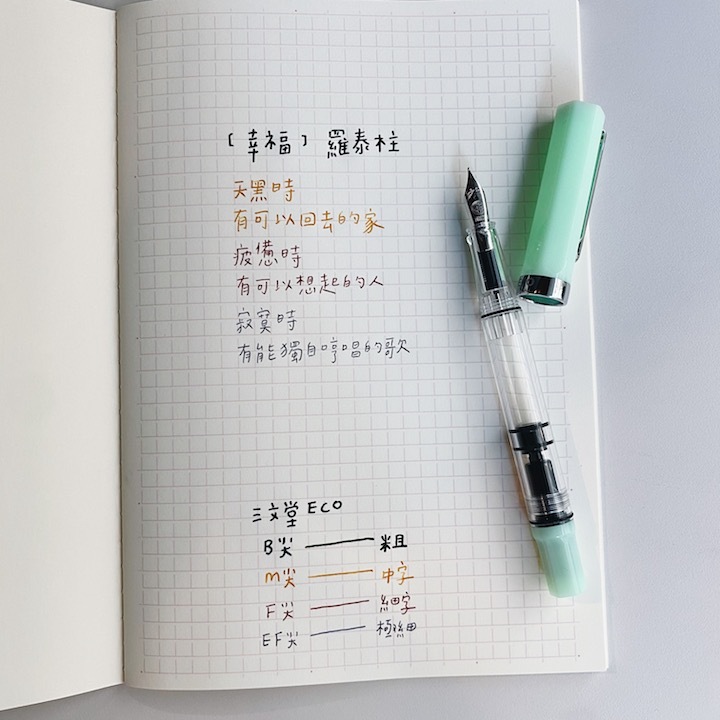 〔幸福〕羅泰柱
天黑時
有可以回去的家
疲憊時
有可以想起的人
寂寞時
有能獨自哼唱的歌
三文堂 ECO
B尖 —— 粗
M尖 —— 中字
F尖 —— 細字
EF尖 —— 極細